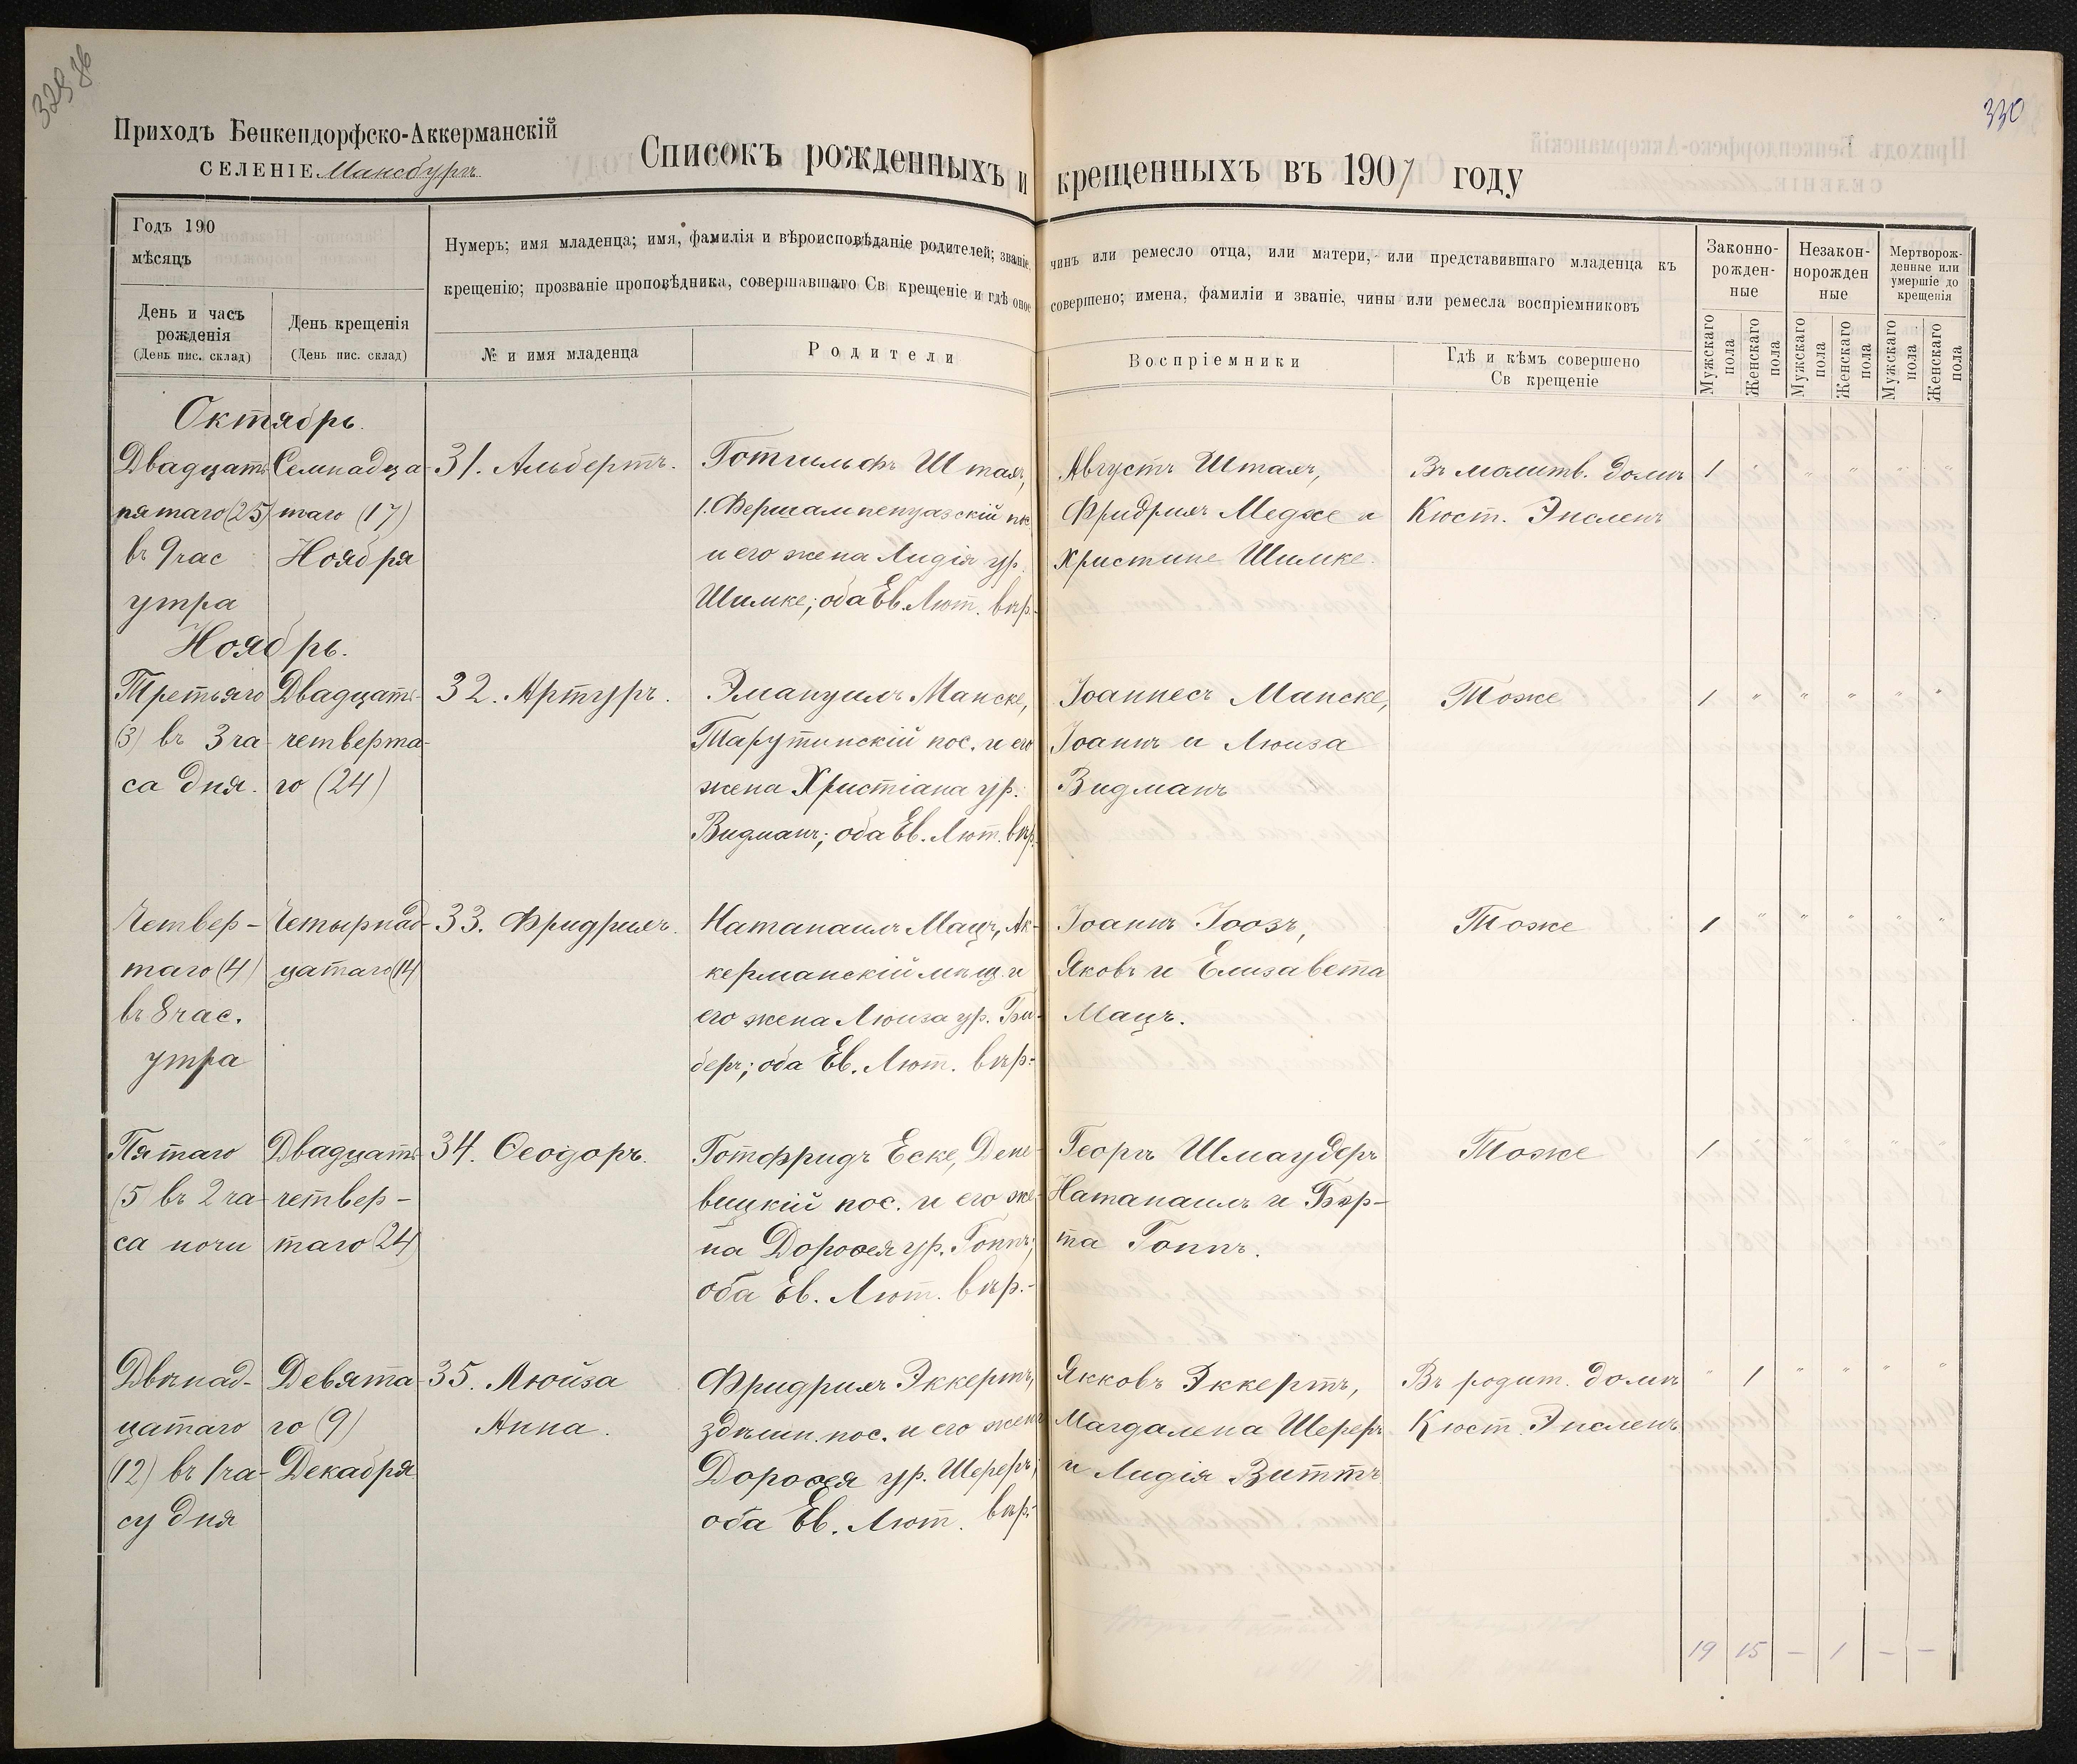 330
Приходъ Бенкендорфско-Аккерманскій
СЕЛЕНІЕ Мансбургъ
Списокъ рожденныхъ и крещенныхъ въ 1907 году
Годъ 190
мѣсяцъ
День и часъ
рожденія
(День пис. склад)
День крещенія
(День пис. склад)
Нумеръ; имя младенца; имя, фамилія и вѣроисповѣданіе родителей; званіе, чинъ или ремесло отца, или матери, или представившаго младенца къ
крещенію; прозваніе проповѣдника, совершавшаго Св крещеніе и гдѣ оное совершено; имена, фамиліи и званіе, чины или ремесла воспріемниковъ
№ и имя младенца
Родители
Воспріемники
Гдѣ и кѣмъ совершено
Св крещеніе
Законно-
рожден-
ные
Незакон-
норожден
ные
Мертворож-
денные или
умершіе до
крещенія
Мужскаго пола
Женскаго пола
Мужскаго пола
Женскаго пола
Мужскаго пола
Женскаго пола
Октябрь.
Двадцать
пятаго (25)
въ 9 час
утра
Семнадца-
таго (17)
Ноября
31. Альбертъ.
Готгильфъ Штахъ,
1. Фершампенуазскій пос
и его жена Лидія ур.
Шимке; оба Ев. Лют. вѣр.
Августъ Штахъ,
Фридрихъ Медже и
Христине Шимке.
Въ молитв. домѣ
Кюст. Энсленъ
1 " " " " "
Ноябрь.
Третьяго
(3) въ 3 ча-
са дня.
Двадцать
четверта-
го (24)
32. Артуръ.
Эмануилъ Манске,
Тарутинскій пос. и его
жена Христіана ур.
Видманъ; оба Ев. Лют. вѣр.
Іоаннесъ Манске,
Іоаннъ и Люиза
Видманъ
Тоже
1 " " " " "
Четвер-
таго (4)
въ 8 час.
утра
Четырнад-
цатаго (14)
33. Фридрихъ.
Натанаилъ Мацъ, Ак-
керманскій мѣщ. и
его жена Люиза ур. Би-
беръ; оба Ев. Лют. вѣр.
Іоаннъ Іоозъ,
Яковъ и Елизавета
Мацъ.
Тоже
1 " " " " "
Пятаго
(5 въ 2 ча-
са ночи
Двадцать
четвер-
таго (24)
34. Ѳеодоръ.
Готфридъ Еске, Дене-
вицкій пос. и его же-
на Дороѳея ур. Гоппъ;
оба Ев. Лют. вѣр.
Георгъ Шмаудеръ
Натанаилъ и Бер-
та Гоппъ.
Тоже
1
Двѣнад-
цатаго
(12) въ 1 ча-
су дня
Девята-
го (9)
Декабря
35. Люиза
Анна.
Фридрихъ Эккертъ,
здѣшн. пос. и его жена
Дороѳея ур. Шереръ;
оба Ев. Лют. вѣр.
Якковъ Эккертъ,
Магдалена Шереръ
и Лидія Виттъ
Въ родит. домѣ
Кюст. Энсленъ
" 1 " " " "
19 15 — 1 — —